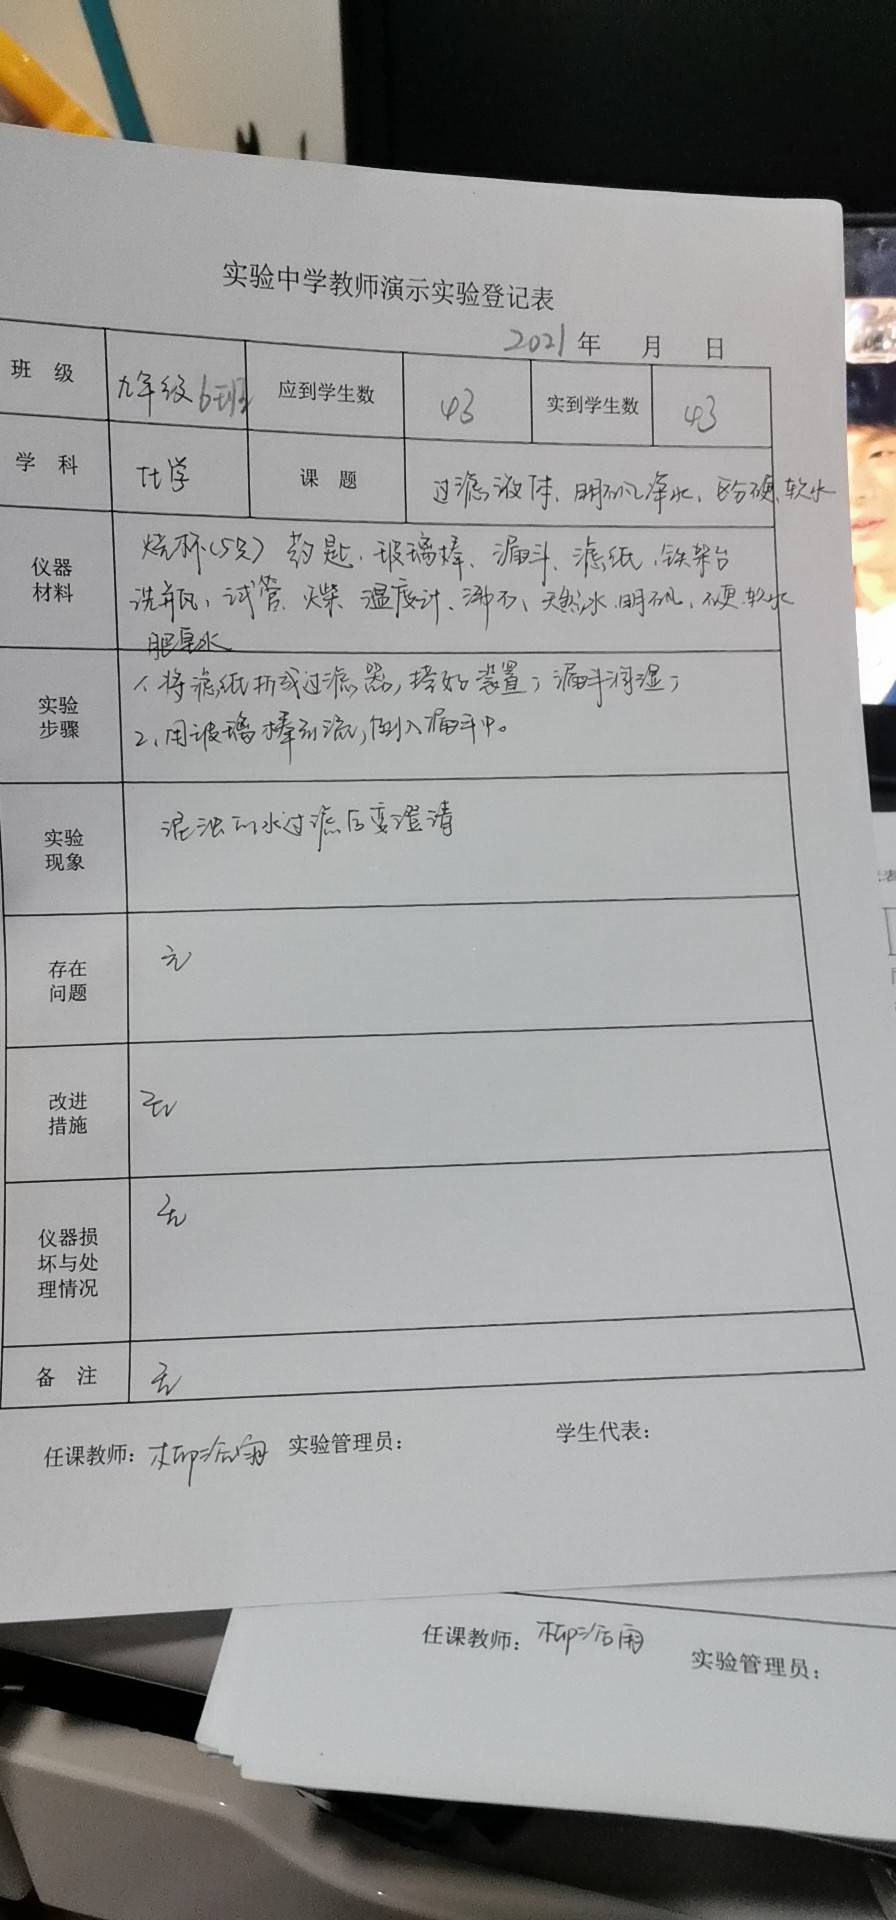 实验中学教师演示实验登记表
2021年 月 日
班 级 九年级6班 应到学生数 43 实到学生数 43
学 科 化学 课 题 过滤液体、明矾净水、区分硬、软水
仪器材料 烧杯(5只) 药匙、玻璃棒、漏斗、滤纸、铁架台
洗瓶、试管、火柴、温度计、沸石、天然水、明矾、硬、软水
肥皂水
实验步骤 1、将滤纸折成过滤器，搭好装置；漏斗润湿；
2、用玻璃棒引流，倒入漏斗中。
实验现象 混浊的水过滤后变澄清
存在问题 无
改进措施 无
仪器损坏与处理情况 无
备 注 无
任课教师： 实验管理员： 学生代表：
任课教师： 实验管理员：